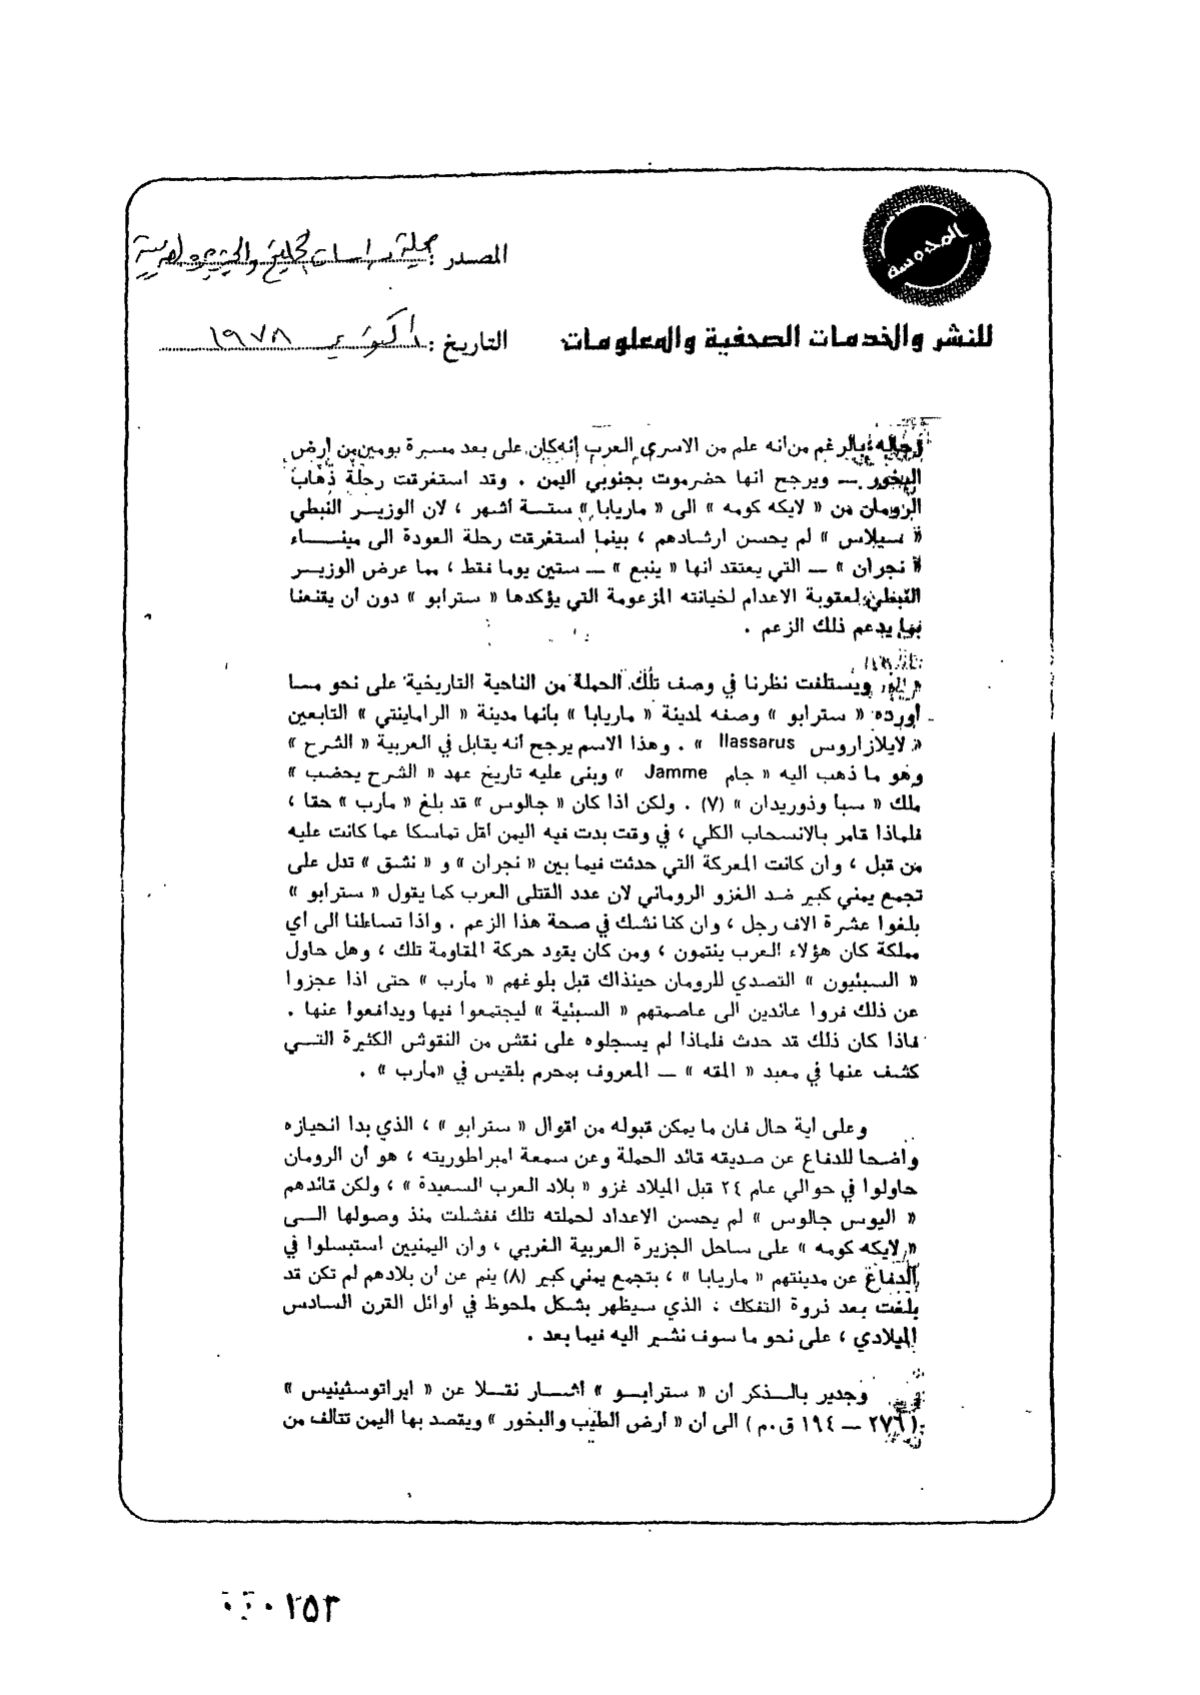 المحروسة
المصدر : مجلة دراسات الخليج والجزيرة العربية
للنشر والخدمات الصحفية والمعلومات
التاريخ : أكتوبر ١٩٧٨
رجاله بالرغم من أنه علم من الاسرى العرب أنه كان على بعد مسيرة يومين من أرض
البخور — ويرجح انها حضرموت بجنوبي اليمن . وقد استغرقت رحلة ذهاب
الرومان من « لايكه كومه » الى « ماريابا » ستـة أشهر ، لان الوزيـر النبطي
« سيلاس » لم يحسن ارشادهم ، بينما استغرقت رحلة العودة الى مينـاء
« نجران » — التي يعتقد أنها « ينبع » — ستين يوما فقط ، مما عرض الوزيـر
النبطي لعقوبة الاعدام لخيانته المزعومة التي يؤكدها « سترابو » دون أن يقنعنا
بما يدعم ذلك الزعم .
ويستلفت نظرنا في وصف تلك الحملة من الناحية التاريخية على نحو مـا
أورده « سترابو » وصفه لمدينة « ماريابا » بأنها مدينة « الراماينتي » التابعين
« لايلازاروس Ilassarus » . وهذا الاسم يرجح أنه يقابل في العربية « الشرح »
وهو ما ذهب اليه « جام Jamme » وبنى عليه تاريخ عهد « الشرح يحضب »
ملك « سبأ وذوريدان » (٧) . ولكن اذا كان « جالوس » قد بلغ « مأرب » حقا ،
فلماذا قامر بالانسحاب الكلي ، في وقت بدت فيه اليمن أقل تماسكا عما كانت عليه
من قبل ، وان كانت المعركة التي حدثت فيما بين « نجران » و « نشق » تدل على
تجمع يمني كبير ضـد الغزو الروماني لان عدد القتلى العرب كما يقول « سترابو »
بلغوا عشرة الاف رجل ، وان كنا نشك في صحة هذا الزعم . واذا تساءلنا الى أي
مملكة كان هؤلاء العرب ينتمون ، ومن كان يقود حركة المقاومة تلك ، وهل حاول
« السبئيون » التصدي للرومان حينذاك قبل بلوغهم « مأرب » حتى اذا عجزوا
عن ذلك فروا عائدين الى عاصمتهم « السبئية » ليجتمعوا فيها ويدافعوا عنها .
فاذا كان ذلك قد حدث فلماذا لم يسجلوه على نقش من النقوش الكثيرة التـي
كشف عنها في معبد « المقه » — المعروف بمحرم بلقيس في «مأرب » .
وعلى أية حال فان ما يمكن قبوله من أقوال « سترابو » ، الذي بدا انحيازه
واضحا للدفاع عن صديقه قائد الحملة وعن سمعة امبراطوريته ، هو أن الرومان
حاولوا في حوالي عام ٢٤ قبل الميلاد غزو « بلاد العرب السعيدة » ، ولكن قائدهم
« اليوس جالوس » لم يحسن الاعداد لحملته تلك ففشلت منذ وصولها الـى
« لايكه كومه » على ساحل الجزيرة العربية الغربي ، وان اليمنيين استبسلوا في
الدفاع عن مدينتهم « ماريابا » ، بتجمع يمني كبير (٨) ينم عن أن بلادهم لم تكن قد
بلغت بعد ذروة التفكك ، الذي سيظهر بشكل ملحوظ في أوائل القرن السادس
الميلادي ، على نحو ما سوف نشير اليه فيما بعد .
وجدير بالـذكر أن « سترابـو » أشـار نقـلا عن « ايراتوسثينيس »
(٢٧٦ — ١٩٤ ق.م) الى أن « أرض الطيب والبخور » ويقصد بها اليمن تتألف من
٢٥٣